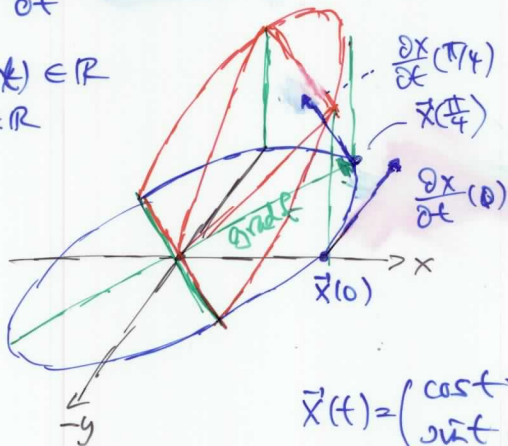 ∂t
) ∈ ℝ
∈ ℝ
∂x/∂t (π/4)
x⃗(π/4)
∂x/∂t (0)
grad f
x
x⃗(0)
-y
x⃗(t) = ( cos t
sin t